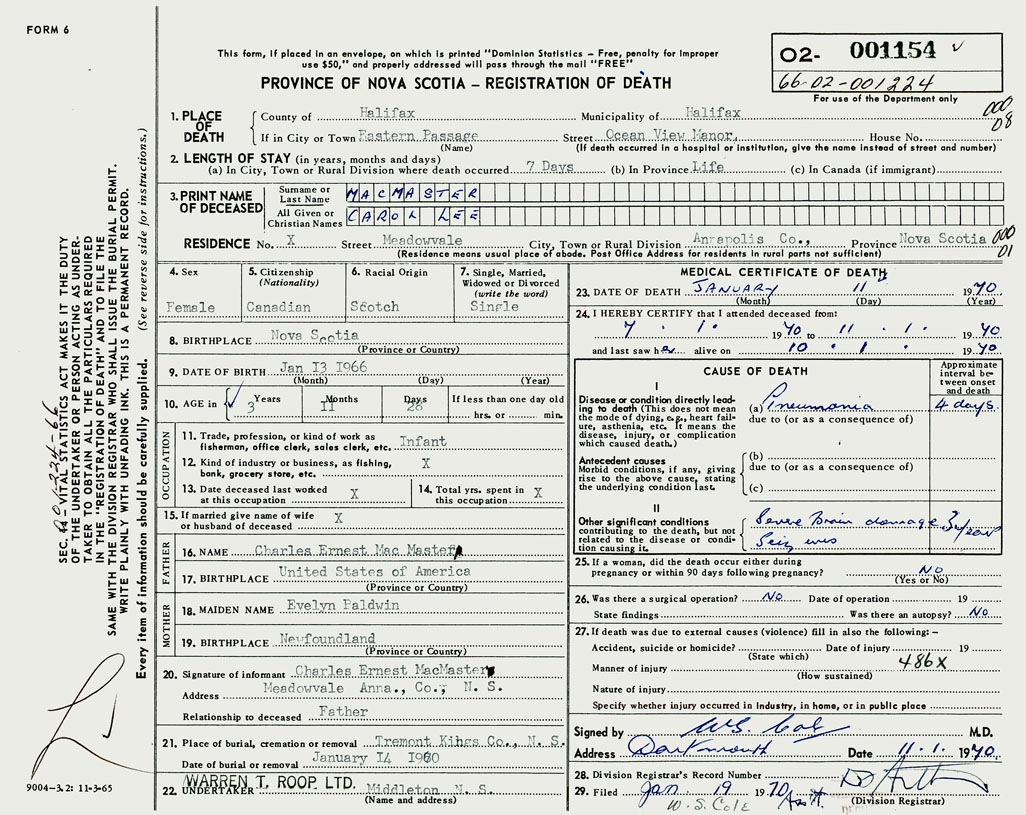 FORM 6
This form, if placed in an envelope, on which is printed "Dominion Statistics – Free, penalty for improper
use $50," and properly addressed will pass through the mail "FREE"
PROVINCE OF NOVA SCOTIA – REGISTRATION OF DEATH
02- 001154
66-02-001224
For use of the Department only
000
08
1. PLACE OF DEATH
County of Halifax Municipality of Halifax
If in City or Town Eastern Passage Street Ocean View Manor, House No.
(Name) (If death occurred in a hospital or institution, give the name instead of street and number)
2. LENGTH OF STAY (in years, months and days)
(a) In City, Town or Rural Division where death occurred 7 Days (b) In Province Life (c) In Canada (if immigrant)
3. PRINT NAME OF DECEASED
Surname or Last Name MACMASTER
All Given or Christian Names CAROL LEE
RESIDENCE No. X Street Meadowvale City, Town or Rural Division Annapolis Co., Province Nova Scotia
(Residence means usual place of abode. Post Office Address for residents in rural parts not sufficient)
000
01
4. Sex
Female
5. Citizenship (Nationality)
Canadian
6. Racial Origin
Scotch
7. Single, Married, Widowed or Divorced (write the word)
Single
8. BIRTHPLACE Nova Scotia
(Province or Country)
9. DATE OF BIRTH Jan 13 1966
(Month) (Day) (Year)
10. AGE in Years Months Days If less than one day old
3 11 28 hrs. or min.
OCCUPATION
11. Trade, profession, or kind of work as
fisherman, office clerk, sales clerk, etc. Infant
12. Kind of industry or business, as fishing,
bank, grocery store, etc. X
13. Date deceased last worked
at this occupation X
14. Total yrs. spent in
this occupation X
15. If married give name of wife
or husband of deceased X
FATHER
16. NAME Charles Ernest Mac Master
17. BIRTHPLACE United States of America
(Province or Country)
MOTHER
18. MAIDEN NAME Evelyn Paldwin
19. BIRTHPLACE Newfoundland
(Province or Country)
20. Signature of informant Charles Ernest MacMaster
Address Meadowvale Anna., Co., N. S.
Relationship to deceased Father
21. Place of burial, cremation or removal Tremont Kings Co., N. S.
Date of burial or removal January 14 1960
22. UNDERTAKER WARREN T. ROOP LTD. Middleton N. S.
(Name and address)
MEDICAL CERTIFICATE OF DEATH
23. DATE OF DEATH JANUARY 11 1970
(Month) (Day) (Year)
24. I HEREBY CERTIFY that I attended deceased from:
7 . 1 . 1970 to 11 . 1 . 1970
and last saw her alive on 10 . 1 . 1970
CAUSE OF DEATH
Approximate interval between onset and death
I
Disease or condition directly leading
to death (This does not mean
the mode of dying, e.g., heart failure,
asthenia, etc. It means the
disease, injury, or complication
which caused death.)
(a) Pneumonia 4 days.
due to (or as a consequence of)
Antecedent causes
Morbid conditions, if any, giving
rise to the above cause, stating
the underlying condition last.
(b)
due to (or as a consequence of)
(c)
II
Other significant conditions
contributing to the death, but not
related to the disease or condition
causing it.
Severe Brain damage 3 year
Seizures
25. If a woman, did the death occur either during
pregnancy or within 90 days following pregnancy? NO
(Yes or No)
26. Was there a surgical operation? NO. Date of operation 19
State findings Was there an autopsy? NO.
27. If death was due to external causes (violence) fill in also the following: –
Accident, suicide or homicide? Date of injury 19
(State which)
Manner of injury 486X
(How sustained)
Nature of injury
Specify whether injury occurred in Industry, in home, or in public place
Signed by W.S. Cole M.D.
Address Dartmouth Date 11.1. 1970.
28. Division Registrar's Record Number
29. Filed Jan. 19 1970
(Division Registrar)
W. S. Cole
SEC. 14 – VITAL STATISTICS ACT MAKES IT THE DUTY
OF THE UNDERTAKER OR PERSON ACTING AS UNDER-
TAKER TO OBTAIN ALL THE PARTICULARS REQUIRED
IN THE "REGISTRATION OF DEATH" AND TO FILE THE
SAME WITH THE DIVISION REGISTRAR WHO SHALL ISSUE THE BURIAL PERMIT.
WRITE PLAINLY WITH UNFADING INK. THIS IS A PERMANENT RECORD.
Every item of information should be carefully supplied. (See reverse side for instructions.)
9004-3.2: 11-3-65